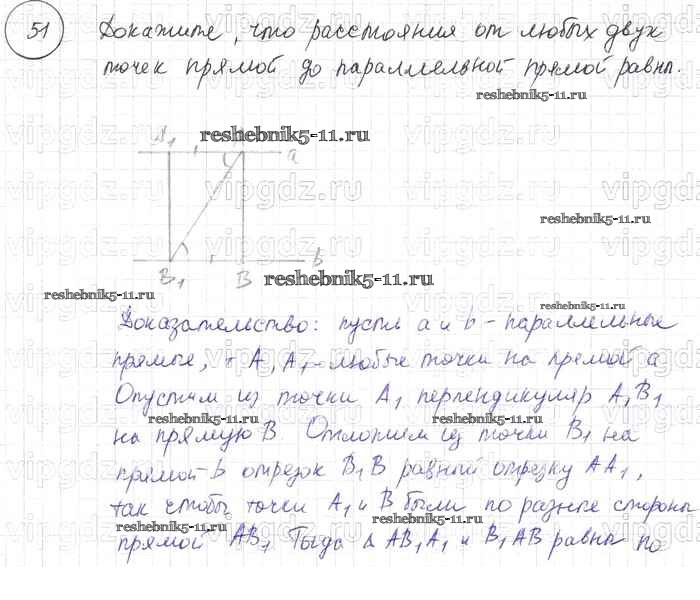 51 Докажите, что расстояния от любых двух
точек прямой до параллельной прямой равны.
reshebnik5-11.ru
A₁ reshebnik5-11.ru
a
reshebnik5-11.ru
b
B₁ B reshebnik5-11.ru
reshebnik5-11.ru
reshebnik5-11.ru
Доказательство: пусть a и b - параллельные
прямые, A, A₁ - любые точки на прямой a
Опустим из точки A₁ перпендикуляр A₁B₁
reshebnik5-11.ru reshebnik5-11.ru
на прямую B. Отложим из точки B₁ на
прямой b отрезок B₁B равный отрезку AA₁,
так чтобы точки A₁ и B были по разные стороны
reshebnik5-11.ru reshebnik5-11.ru
прямой AB₁. Тогда Δ AB₁A₁ и B₁AB равны по
vipgdz.ru